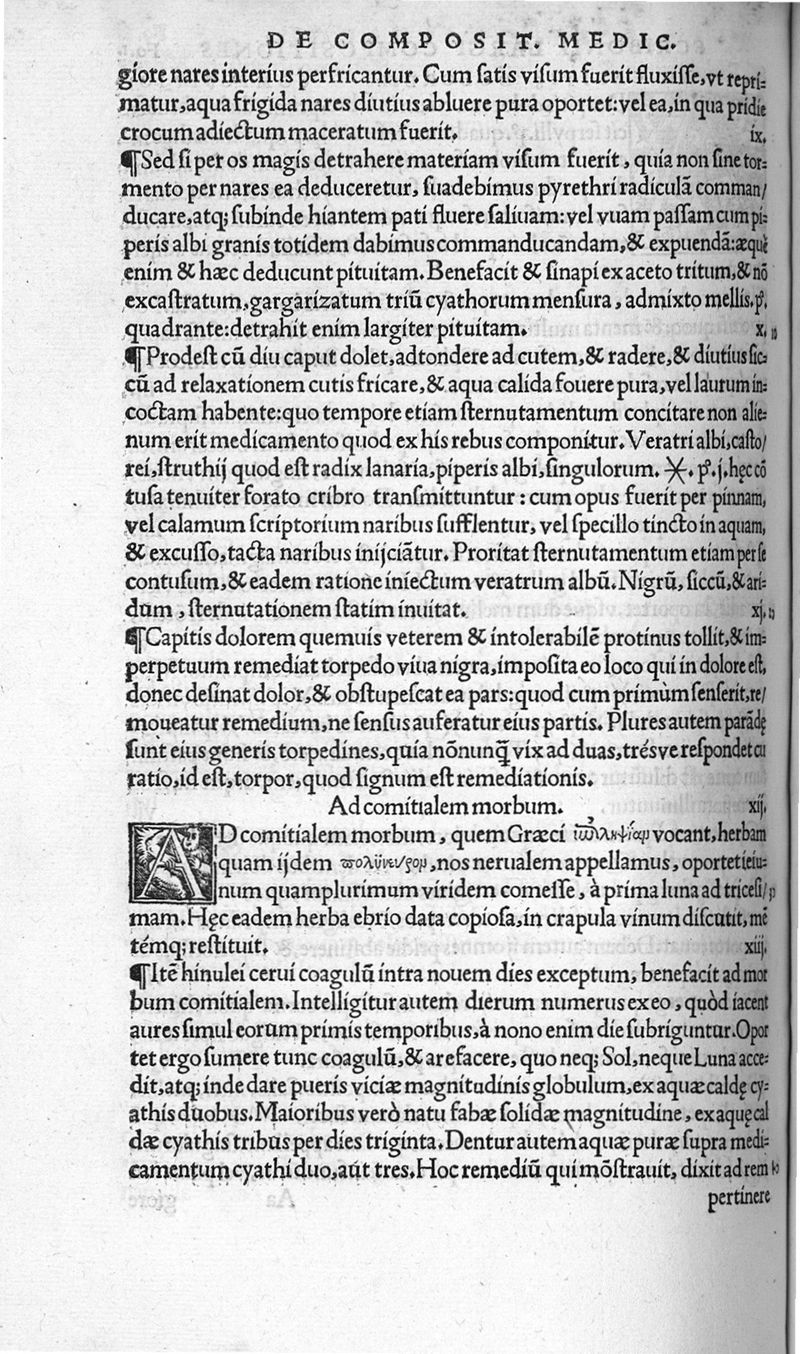 DE COMPOSIT. MEDIC.
giore nares interius perfricantur. Cum satis visum fuerit fluxisse, vt repri-
matur, aqua frigida nares diutius abluere pura oportet: vel ea, in qua pridie
crocum adiectum maceratum fuerit. ix.
¶Sed si per os magis detrahere materiam visum fuerit, quia non sine tor-
mento per nares ea deduceretur, suadebimus pyrethri radiculā comman/
ducare, atq; subinde hiantem pati fluere saliuam: vel vuam passam cum pi-
peris albi granis totidem dabimus commanducandam, & expuendā: æquè
enim & hæc deducunt pituitam. Benefacit & sinapi ex aceto tritum, & nō
excastratum, gargarizatum triū cyathorum mensura, admixto mellis. p̊.
quadrante: detrahit enim largiter pituitam. x.
¶Prodest cū diu caput dolet, adtondere ad cutem, & radere, & diutius sic-
cū ad relaxationem cutis fricare, & aqua calida fouere pura, vel laurum in-
coctam habente: quo tempore etiam sternutamentum concitare non alie-
num erit medicamento quod ex his rebus componitur. Veratri albi, casto/
rei, struthij quod est radix lanaria, piperis albi, singulorum. Ӿ. p̊. j. hęc cō
tusa tenuiter forato cribro transmittuntur: cum opus fuerit per pinnam,
vel calamum scriptorium naribus sufflentur, vel specillo tincto in aquam,
& excusso, tacta naribus inijciātur. Proritat sternutamentum etiam per se
contusum, & eadem ratione iniectum veratrum albū. Nigrū, siccū, & ari-
dum, sternutationem statim inuitat. xj.
¶Capitis dolorem quemuis veterem & intolerabilē protinus tollit, & im-
perpetuum remediat torpedo viua nigra, imposita eo loco qui in dolore est,
donec desinat dolor, & obstupescat ea pars: quod cum primùm senserit, re/
moueatur remedium, ne sensus auferatur eius partis. Plures autem parādę
sunt eius generis torpedines, quia nōnunq̄ vix ad duas, trésve respondet cu
ratio, id est, torpor, quod signum est remediationis.
Ad comitialem morbum. xij.
AD comitialem morbum, quem Græci ἐπίληψίαμ vocant, herbam
quam ijdem πολύνευρομ, nos nerualem appellamus, oportet ieiu-
num quamplurimum viridem comesse, à prima luna ad tricesi/
mam. Hęc eadem herba ebrio data copiosa, in crapula vinum discutit, mē
témq; restituit. xiij.
¶Itē hinulei cerui coagulū intra nouem dies exceptum, benefacit ad mor
bum comitialem. Intelligitur autem dierum numerus ex eo, quòd iacent
aures simul eorum primis temporibus, à nono enim die subriguntur. Opor
tet ergo sumere tunc coagulū, & arefacere, quo neq; Sol, neque Luna acce-
dit, atq; inde dare pueris viciæ magnitudinis globulum, ex aquæ caldę cy-
athis duobus. Maioribus verò natu fabæ solidæ magnitudine, ex aquę cal
dæ cyathis tribus per dies triginta. Dentur autem aquæ puræ supra medi-
camentum cyathi duo, aut tres. Hoc remediū qui mōstrauit, dixit ad rem
pertinere